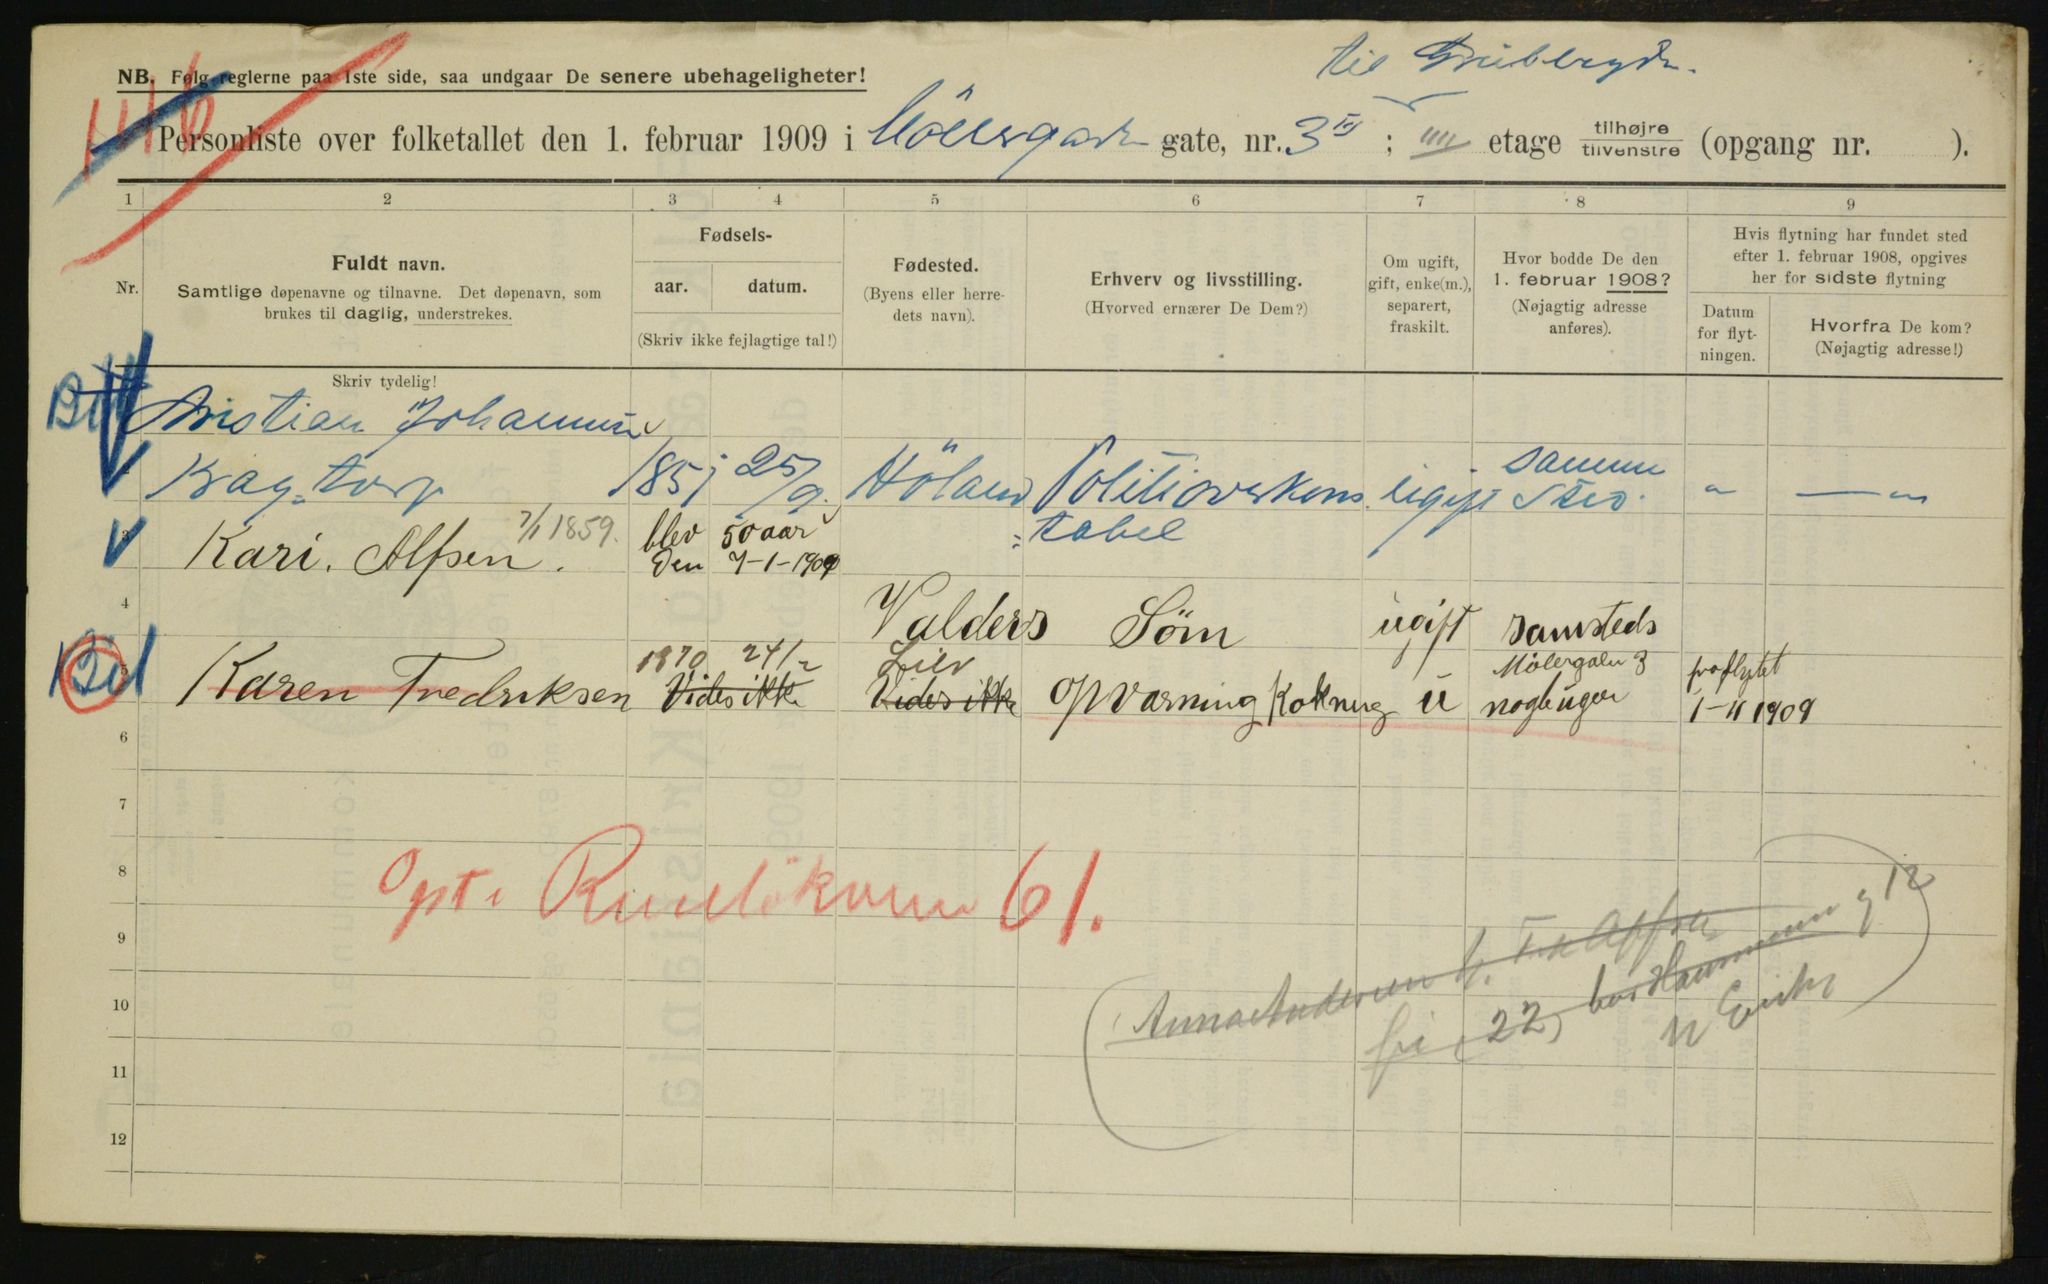 til
NB. Følg reglerne paa 1ste side, saa undgaar De senere ubehageligheter!
Personliste over folketallet den 1. februar 1909 i Möllergaden gate, nr. 3 III ; IIII etage tilhøjre / tilvenstre (opgang nr. ).
1 2 3 4 5 6 7 8 9
Nr.
Fuldt navn.
Samtlige døpenavne og tilnavne. Det døpenavn, som
brukes til daglig, understrekes.
Fødsels-
aar. datum.
(Skriv ikke fejlagtige tal!)
Fødested.
(Byens eller herre-
dets navn).
Erhverv og livsstilling.
(Hvorved ernærer De Dem?)
Om ugift,
gift, enke(m.),
separert,
fraskilt.
Hvor bodde De den
1. februar 1908?
(Nøjagtig adresse
anføres).
Hvis flytning har fundet sted
efter 1. februar 1908, opgives
her for sidste flytning
Datum
for flyt-
ningen.
Hvorfra De kom?
(Nøjagtig adresse!)
Skriv tydelig!
Kristian Johannes
Kragtorp 1851 25/9 Höland Politioverkons ugift samme
Sted. " — "
=tabel
3 Kari. Alfsen. 7/1 1859. blev 50 aar
Den 7-1-1909
4 Valders Söm ugift samsteds
5 Karen Fredriksen 1870 24/2 Lier
Vides ikke Vides ikke opvarning Kokning u Mölergaten 3
nogle uger
1-11 1909
6
7
8
Opt. Ruselökveien 61.
9
10
Anna Andersen
22,
12
11
12